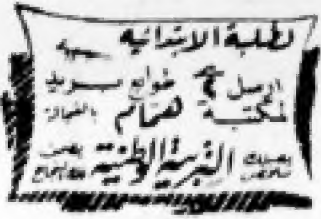 لطلبة الابتدائية
ارسل ٤ طوابع بريد
لمكتبة همام بالفجالة
يصلك ملخص التربية الوطنية